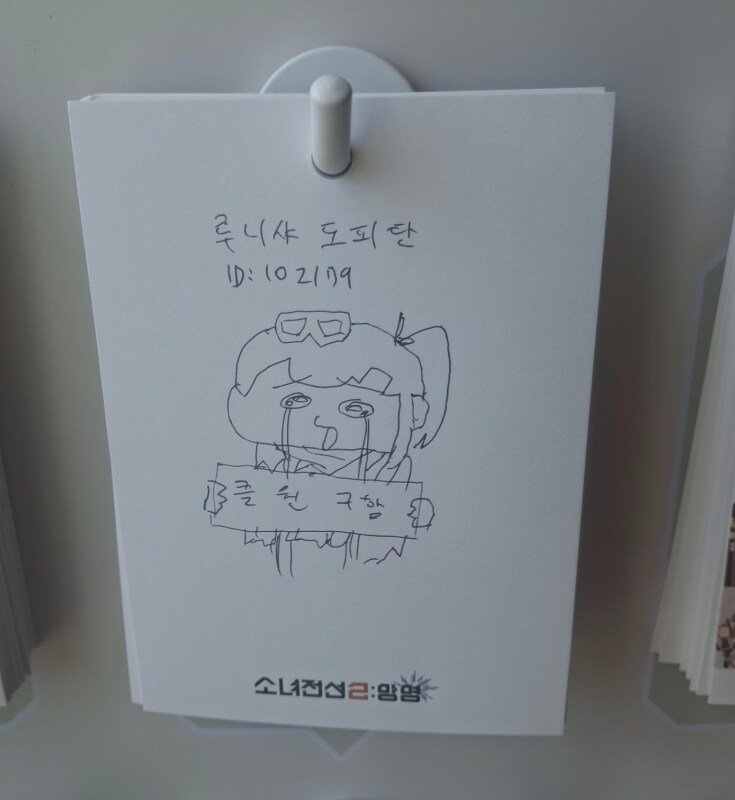 루니샤 도피탄
ID: 102179
클 원 구함
소녀전선2:망명